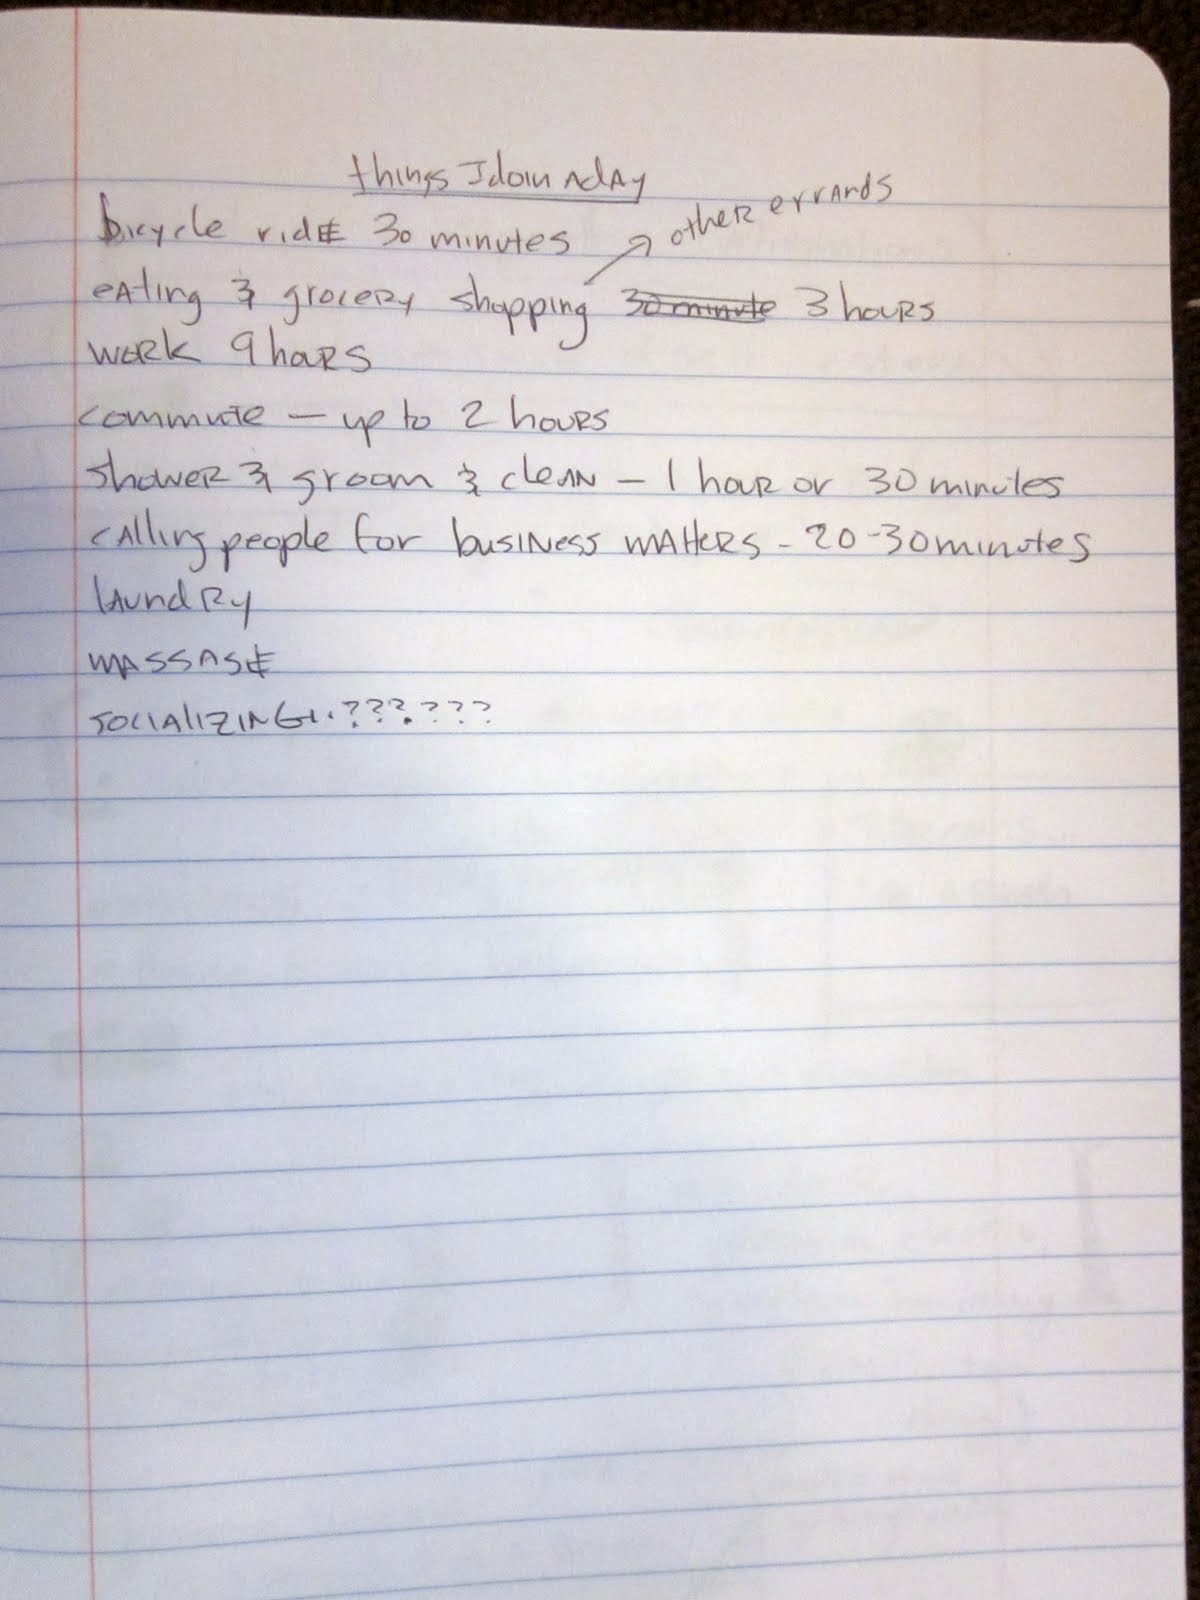 things I do in a day
bicycle ride 30 minutes
other errands
eating & grocery shopping 30 minute 3 hours
work 9 hours
commute - up to 2 hours
shower & groom & clean - 1 hour or 30 minutes
calling people for business matters - 20-30 minutes
laundry
massage
socializing..??????